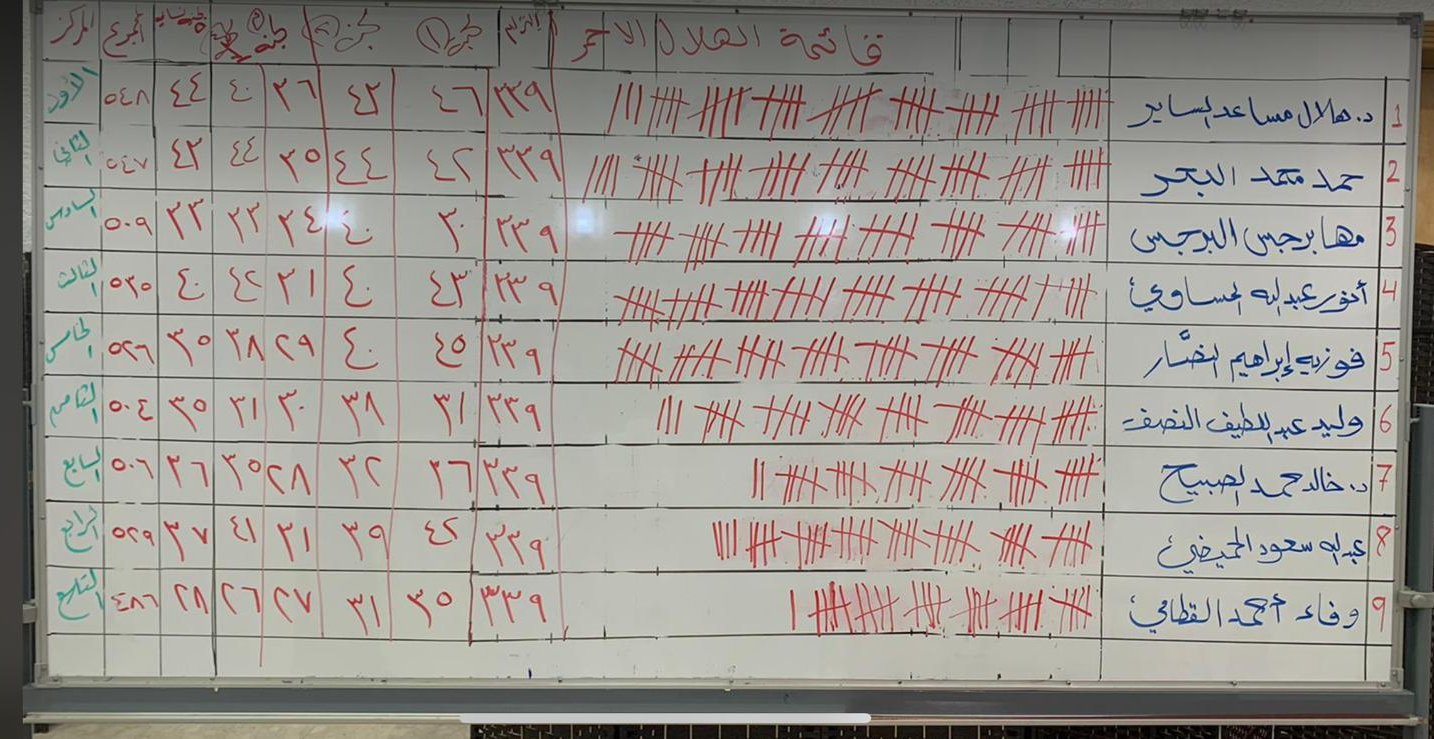 قائمة الهلال الاحمر التزام لجنة (١) لجنة (٢) لجنة المجموع المركز
1 د. هلال مساعد الساير ٣٣٩ ٤٦ ٤٣ ٣٦ ٤٠ ٤٤ ٥٤٨ الأول
2 حمد محمد البحر ٣٣٩ ٤٢ ٤٤ ٣٥ ٤٤ ٤٣ ٥٤٧ الثاني
3 مها برجس البرجس ٣٣٩ ٣٠ ٤٠ ٣٤ ٣٣ ٣٣ ٥٠٩ السادس
4 أنور عبدالله الحساوي ٣٣٩ ٤٣ ٤٠ ٣١ ٤٢ ٤٠ ٥٣٥ الثالث
5 فوزيه إبراهيم النصَّار ٣٣٩ ٤٥ ٤٠ ٢٩ ٣٨ ٣٥ ٥٢٦ الخامس
6 وليد عبداللطيف النصف ٣٣٩ ٣١ ٣٨ ٣٠ ٣١ ٣٥ ٥٠٤ الثامن
7 د. خالد حمد الصبيح ٣٣٩ ٣٦ ٣٢ ٢٨ ٣٥ ٣٦ ٥٠٦ السابع
8 عبدالله سعود الحميضي ٣٣٩ ٤٢ ٣٩ ٣١ ٤١ ٣٧ ٥٢٩ الرابع
9 وفاء أحمد القطامي ٣٣٩ ٣٥ ٣١ ٢٧ ٢٦ ٢٨ ٤٨٦ التاسع